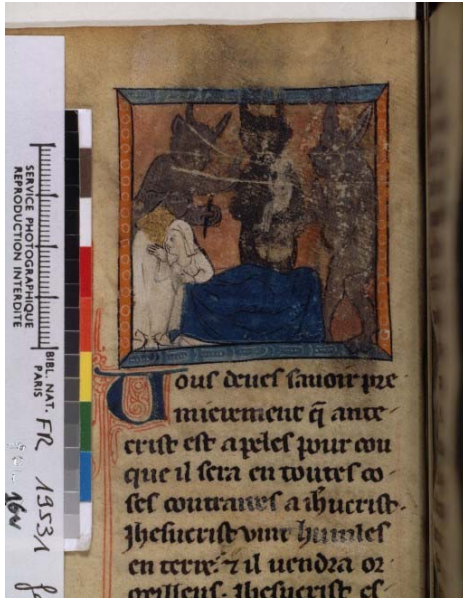 SERVICE PHOTOGRAPHIQUE
REPRODUCTION INTERDITE
BIBL. NAT.
PARIS
FR 19531
Uous deues sauoir pre
mierement q̃ ante
crist est apeles pour cou
que il sera en toutes co
ses contraires a ihūcrist.
Ihesucrist vint humles
en terre. ⁊ il uendra or
geilleus. Ihesucrist es